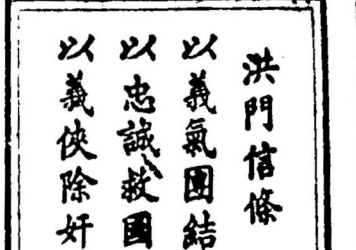 洪門信條
以義氣團結
以忠誠救國
以義俠除奸